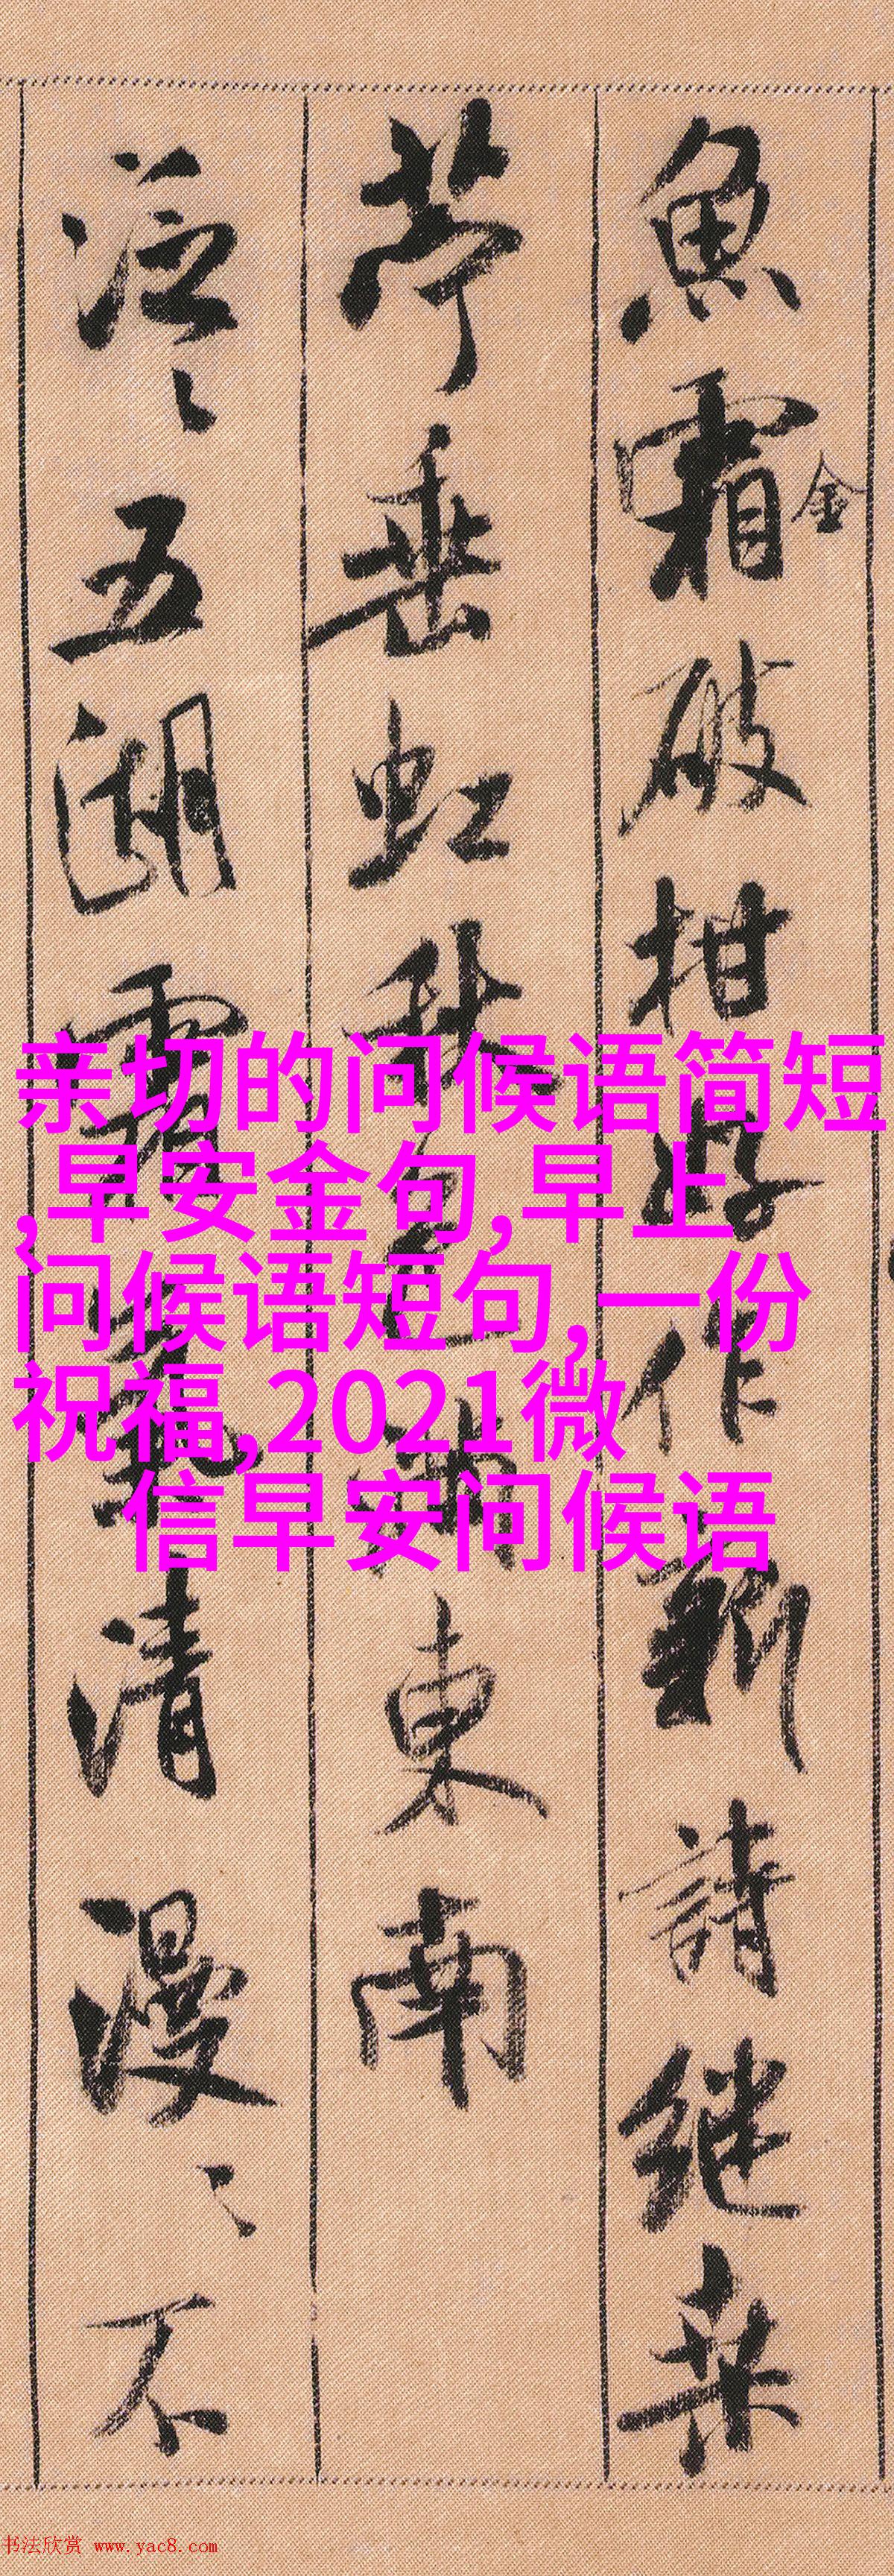 魚霜金破柑好作新詩継桒
苧垂虹秋色满東南
泛〻五湖霜氣清漫〻不
亲切的问候语简短
,早安金句,早上
问候语短句,一份
祝福,2021微
信早安问候语
书法欣赏 www.yac8.com